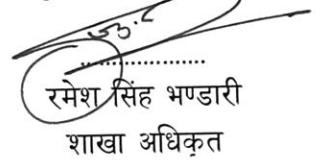 ....................
रमेश सिंह भण्डारी
शाखा अधिकृत